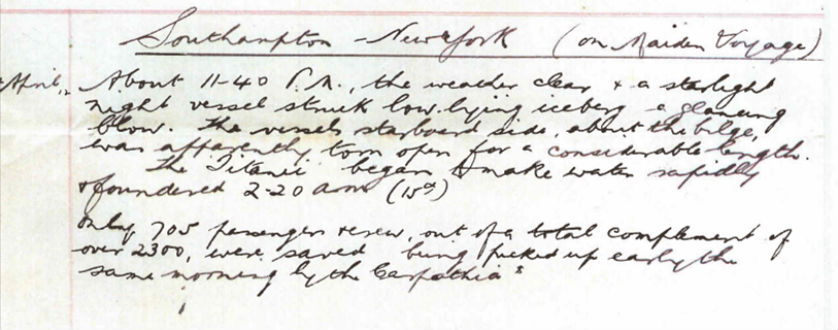 Southampton - New York (on Maiden Voyage)
April,, About 11-40 P.M., the weather clear & a starlight
night vessel struck low-lying iceberg a glancing
blow. The vessels starboard side, about the bilge,
was apparently torn open for a considerable length.
The "Titanic" began to make water rapidly
& foundered 2-20 am (15th)
Only 705 passengers & crew, out of a total complement of
over 2300, were saved being picked up early the
same morning by the "Carpathia"